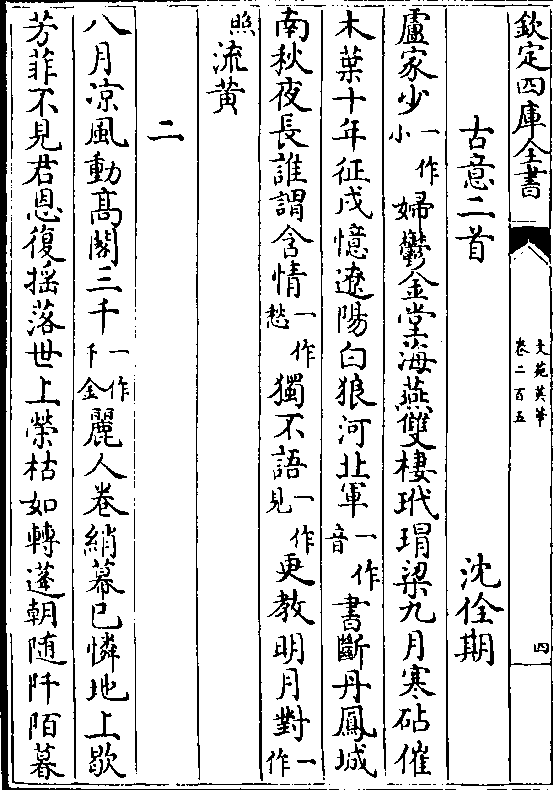 欽定四庫全書
文苑英華
卷二百五
四
古意二首 沈佺期
盧家少一作小婦鬱金堂海燕雙棲玳瑁梁九月寒砧催
木葉十年征戍憶遼陽白狼河北軍一作音書斷丹鳳城
南秋夜長誰謂含情一作愁獨不語一作見更教明月對一作
照流黄
二
八月凉風動髙閣三千一作千金麗人卷綃幕已憐地上歇
芳菲不見君恩復揺落世上榮枯如轉蓬朝随阡陌暮